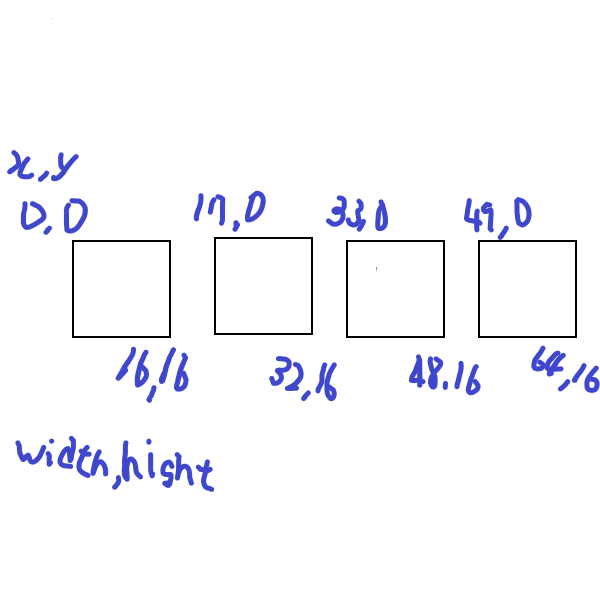 x,y
0,0
17,0
33,0
49,0
16,16
32,16
48.16
64,16
width,hight